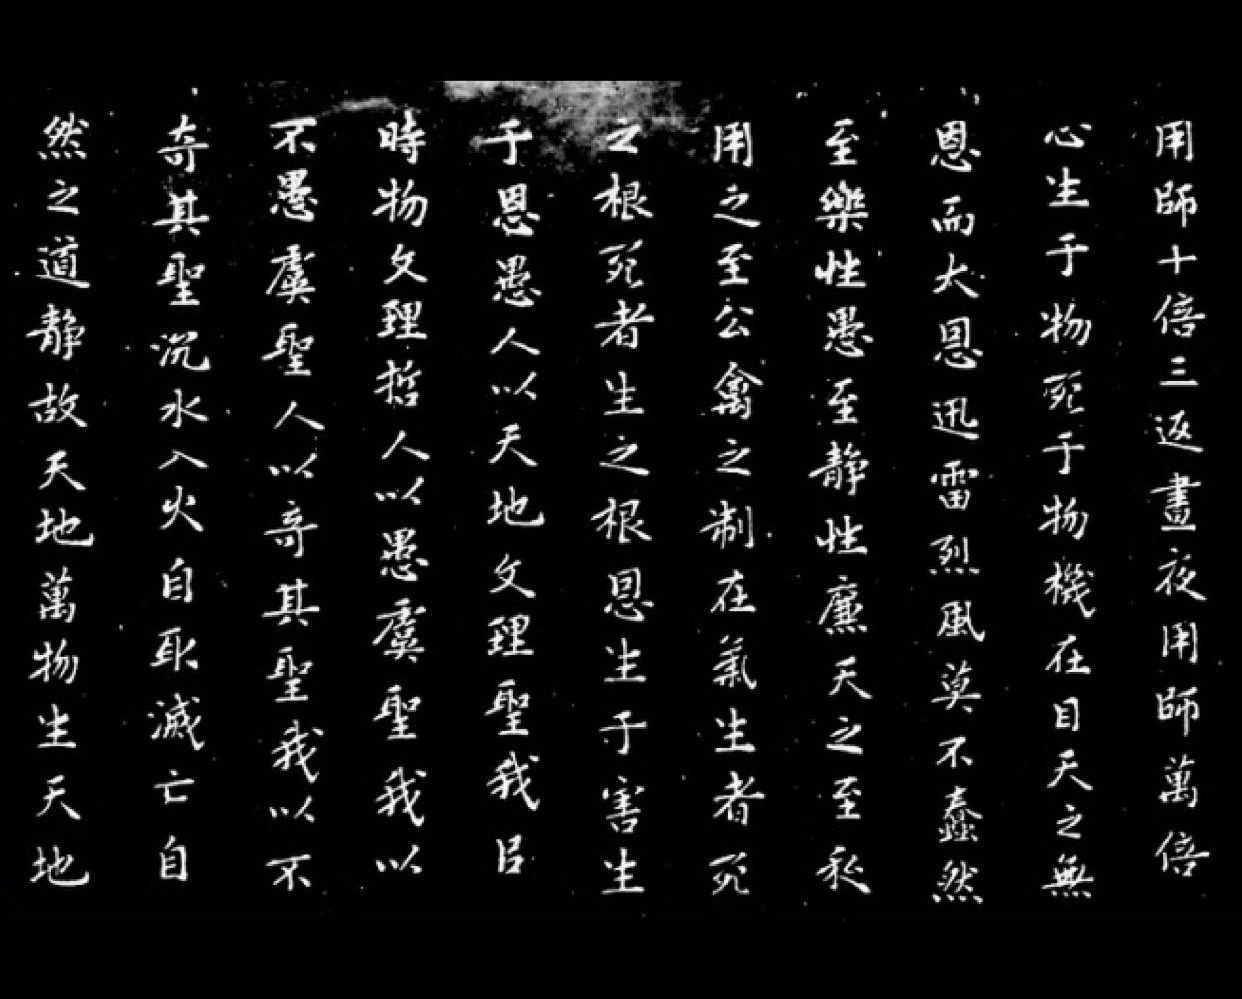 用師十倍三返晝夜用師萬倍
心生于物死于物機在目天之無
恩而大恩迅雷烈風莫不蠢然
至樂性愚至静性廉天之至私
用之至公禽之制在氣生者死
之根死者生之根恩生于害生
于恩愚人以天地文理聖我㠯
時物文理哲人以愚虞聖我以
不愚虞聖人以奇其聖我以不
奇其聖沉水入火自取滅亡自
然之道静故天地萬物生天地